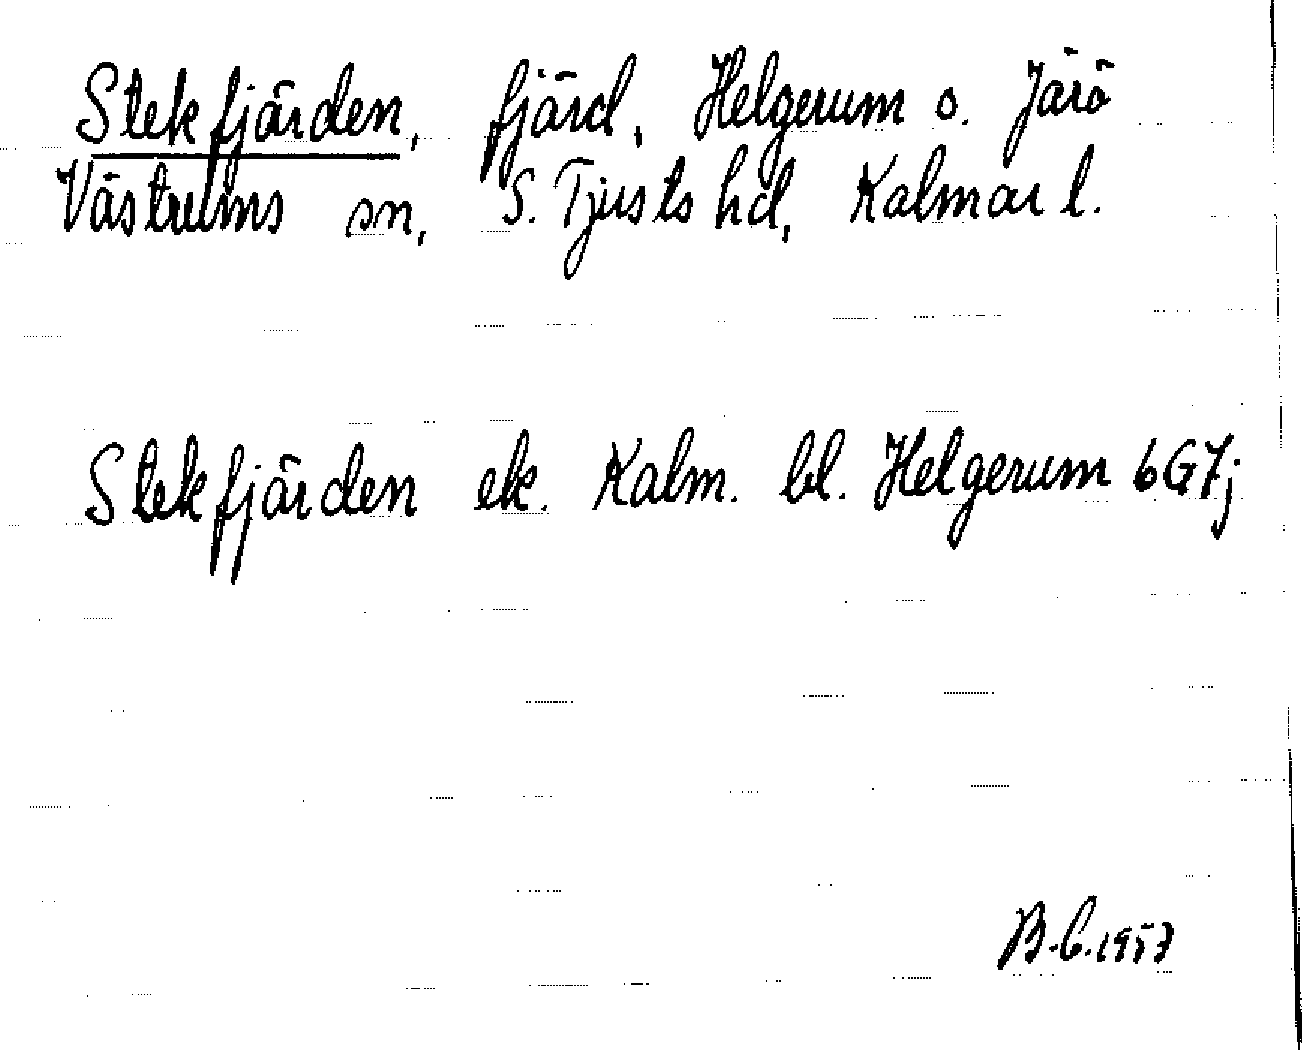 Stekfjärden, fjärd, Helgerum o. Järö
Västrums sn, S. Tjusts hd, Kalmar l.
Stekfjärden ek. Kalm. bl. Helgerum 6G7j
B.C. 1957